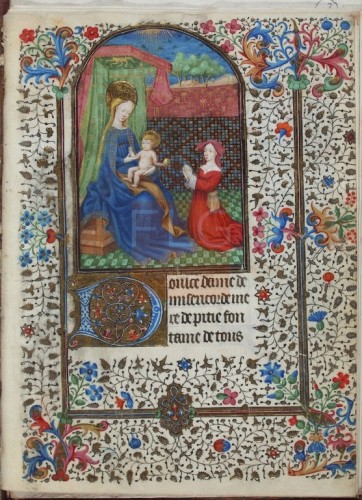 Douice dame de
misericorde me
re de pitie fon
taine de tous
FLG